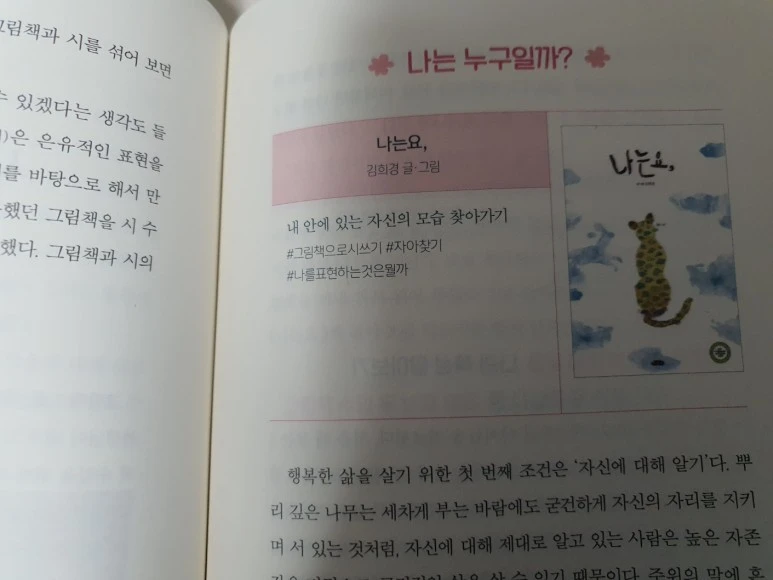 그림책과 시를 섞어 보면
수 있겠다는 생각도 들
은 은유적인 표현을
를 바탕으로 해서 만
했던 그림책을 시 수
했다. 그림책과 시의
나는 누구일까?
나는요,
김희경 글·그림
내 안에 있는 자신의 모습 찾아가기
#그림책으로시쓰기 #자아찾기
#나를표현하는것은뭘까
나는요,
행복한 삶을 살기 위한 첫 번째 조건은 ‘자신에 대해 알기’다. 뿌
리 깊은 나무는 세차게 부는 바람에도 굳건하게 자신의 자리를 지키
며 서 있는 것처럼, 자신에 대해 제대로 알고 있는 사람은 높은 자존
살 수 있기 때문이다. 주위의 말에